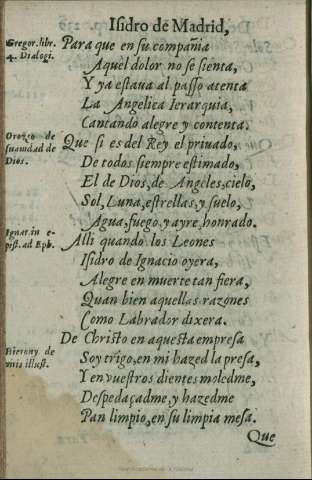 Isidro de Madrid,
Gregor. libr.
4. Dialogi.
Para que en su compañia
Aquel dolor no se sienta,
Y ya estava al passo atenta
La Angelica Ierarquia,
Cantando alegre y contenta.
Orozco de
suauidad de
Dios.
Que si es del Rey el priuado,
De todos siempre estimado,
El de Dios, de Angeles, cielo,
Sol, Luna, estrellas, y suelo,
Agua, fuego, y ayre, honrado.
Ignat. in e-
pist. ad Eph.
Alli quando los Leones
Isidro de Ignacio oyera,
Alegre en muerte tan fiera,
Quan bien aquellas razones
Como Labrador dixera.
Hierony. de
viris illust.
De Christo en aquesta empresa
Soy trigo, en mi hazed la presa,
Y en vuestros dientes moledme,
Despedaçadme, y hazedme
Pan limpio, en su limpia mesa.
Que